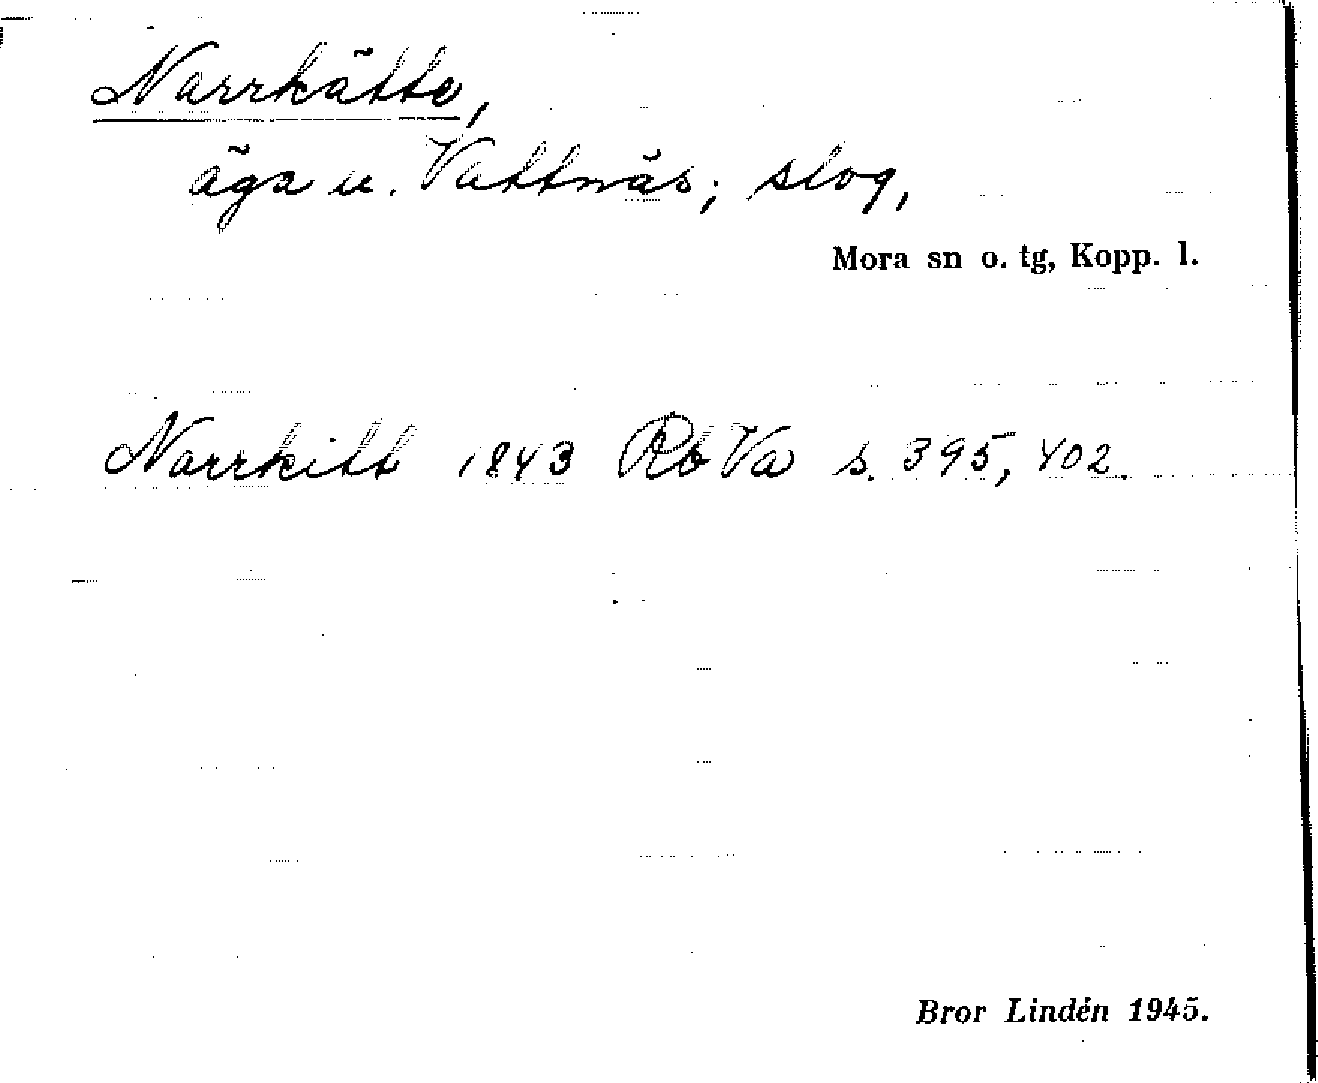 Narrkätte,
äga u. Vattnäs; slog,
Mora sn o. tg, Kopp. l.
Narrkitt 1843 Rb Va s. 395, 402.
Bror Lindén 1945.